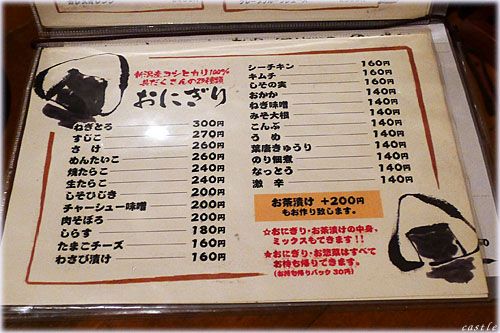 新潟産コシヒカリ100%
具だくさんの23種類
おにぎり
ねぎとろ 300円
すじこ 270円
さけ 260円
めんたいこ 260円
焼たらこ 240円
生たらこ 240円
しそひじき 200円
チャーシュー味噌 200円
肉そぼろ 200円
しらす 180円
たまごチーズ 160円
わさび漬け 160円
シーチキン 160円
キムチ 160円
しその実 160円
おかか 140円
ねぎ味噌 140円
みそ大根 140円
こんぶ 140円
うめ 140円
葉唐きゅうり 140円
のり佃煮 140円
なっとう 140円
激辛 140円
お茶漬け +200円
もお作り致します。
☆おにぎり・お茶漬けの中身、
ミックスもできます!!
☆おにぎり・お惣菜はすべて
お持ち帰りできます。
(お持ち帰りパック 30円)
castle